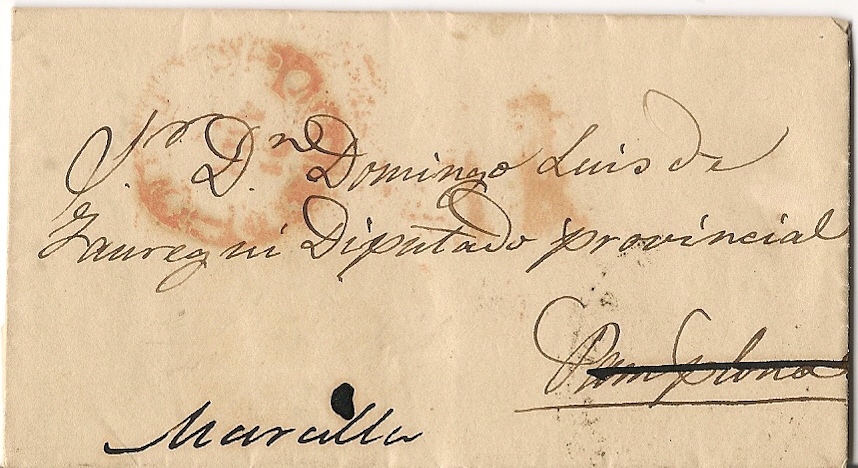 S.or D.n Domingo Luis de
Jauregui Diputado provincial
Pamplona
Marcilla